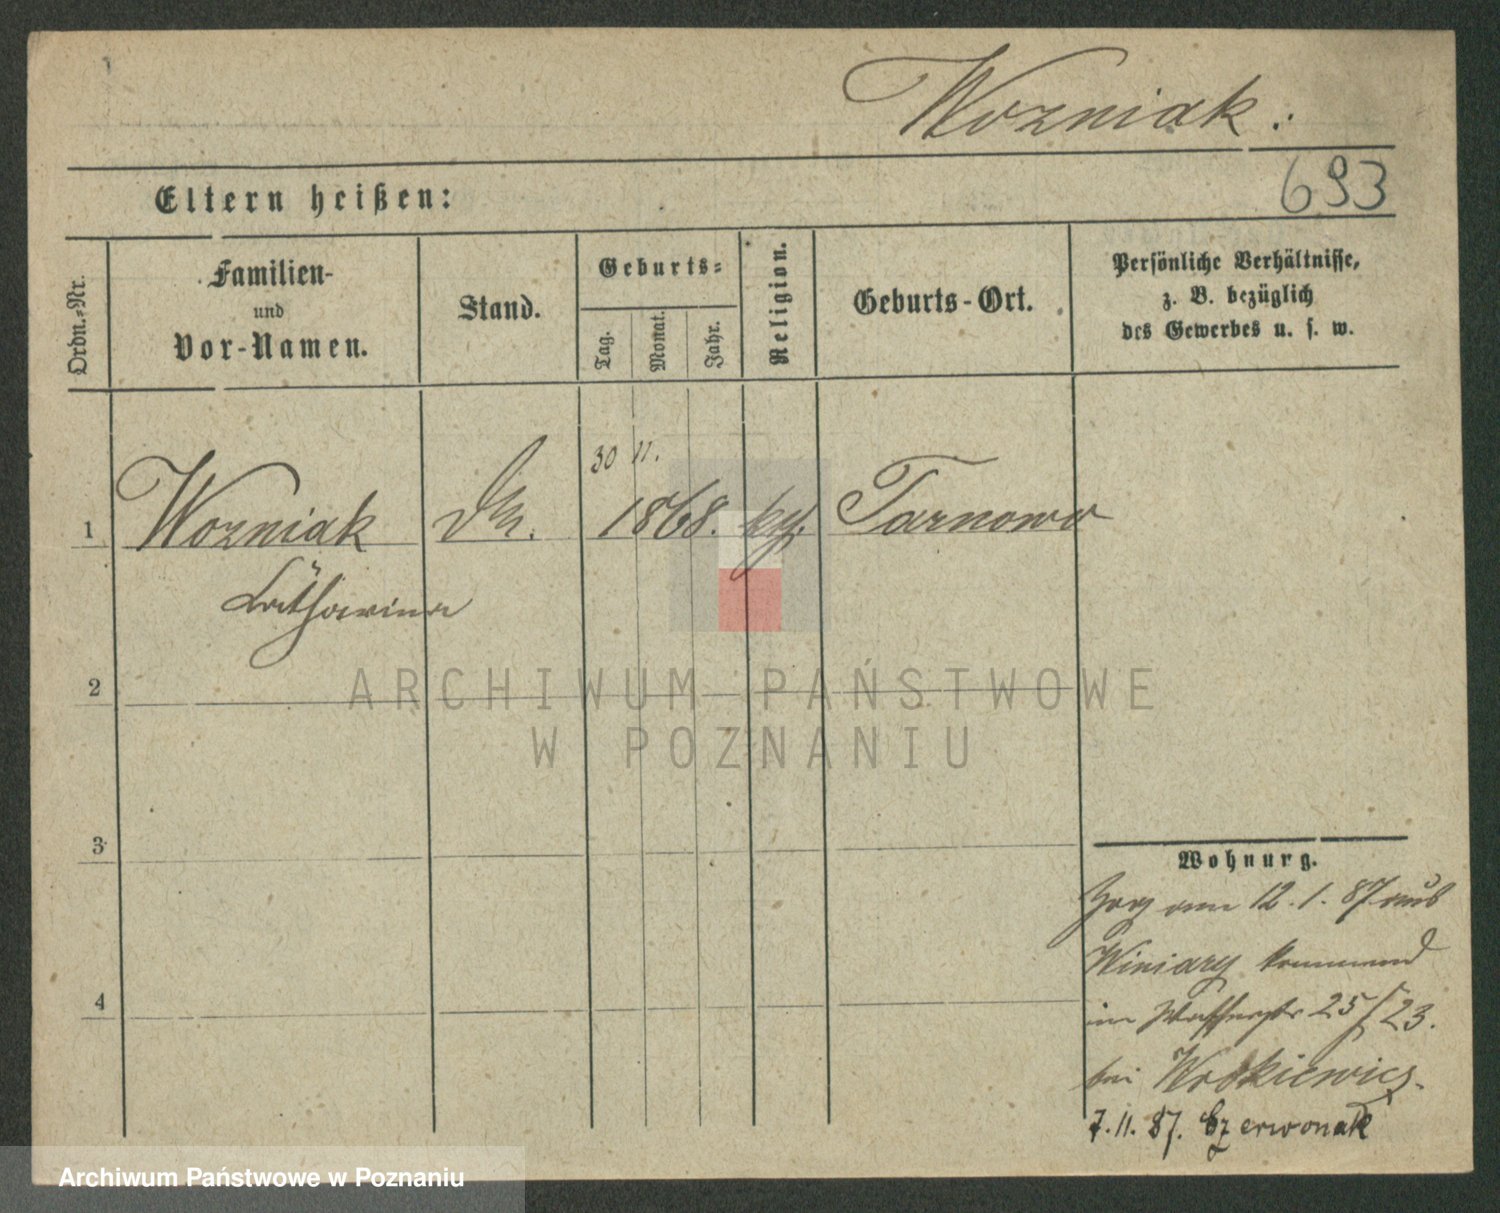 Wozniak.
693
Eltern heißen:
Ordn.-Nr.
Familien-
und
Vor-Namen.
Stand.
Geburts-
Tag.
Monat.
Jahr.
Religion.
Geburts-Ort.
Persönliche Verhältnisse,
z. B. bezüglich
des Gewerbes u. s. w.
30 11.
1 Wozniak 1868. Tarnowo
Catharina
2
3
4
ARCHIWUM PAŃSTWOWE
W POZNANIU
Wohnung.
Zog am 12.1.87 aus
Winiary kommend
25/23.
bei
7.11.87. Czerwonak
Archiwum Państwowe w Poznaniu